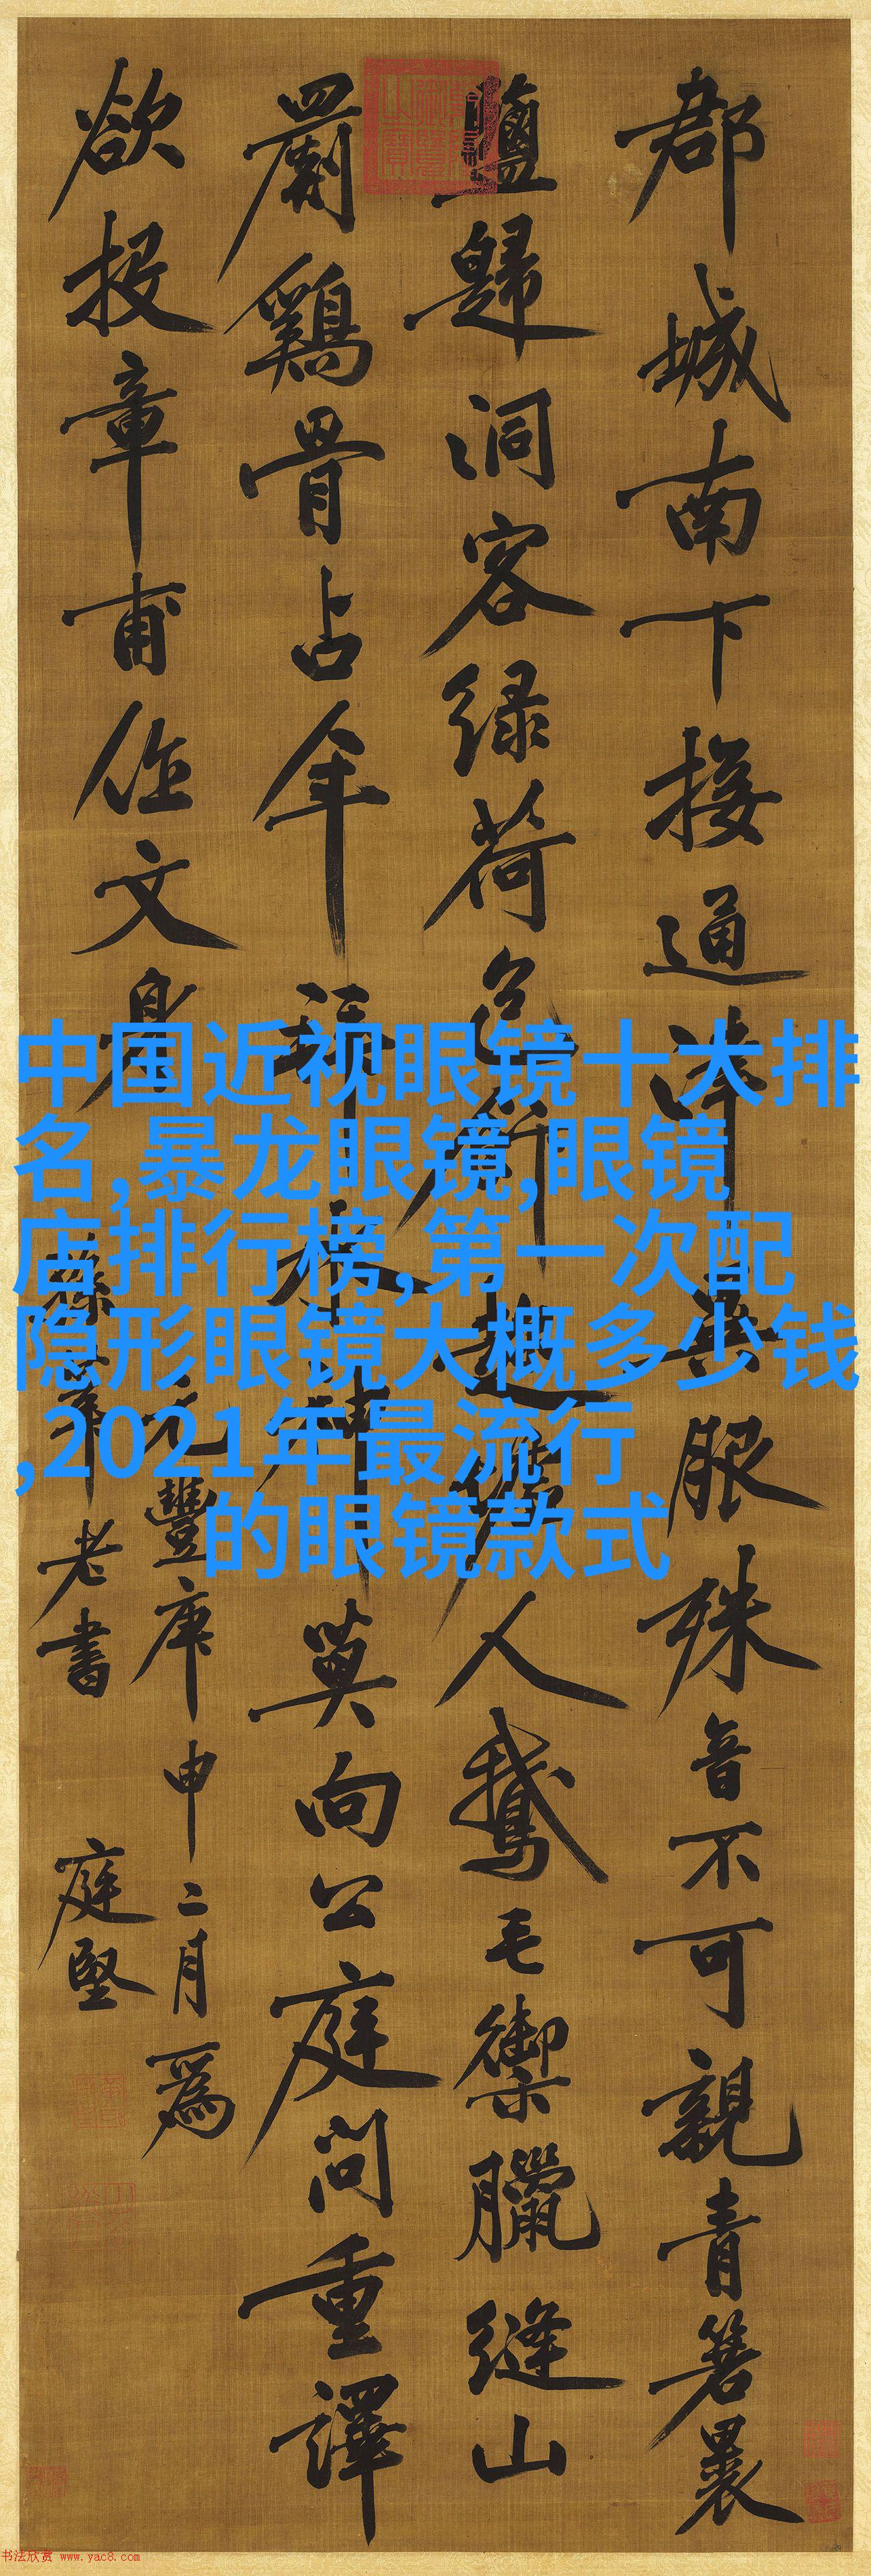 郡城南下接通津異服殊音不可親青箬裹
鹽歸洞客绿荷包趁人鵝毛御臘縫山
罽鷄骨占年水神莫向公庭問重譯
欲投章甫作文身
元豐庚申二月爲
莘老書 庭堅
中国近视眼镜十大排
名,暴龙眼镜,眼镜
店排行榜,第一次配
隐形眼镜大概多少钱
,2021年最流行
的眼镜款式
书法欣赏 www.yac8.com